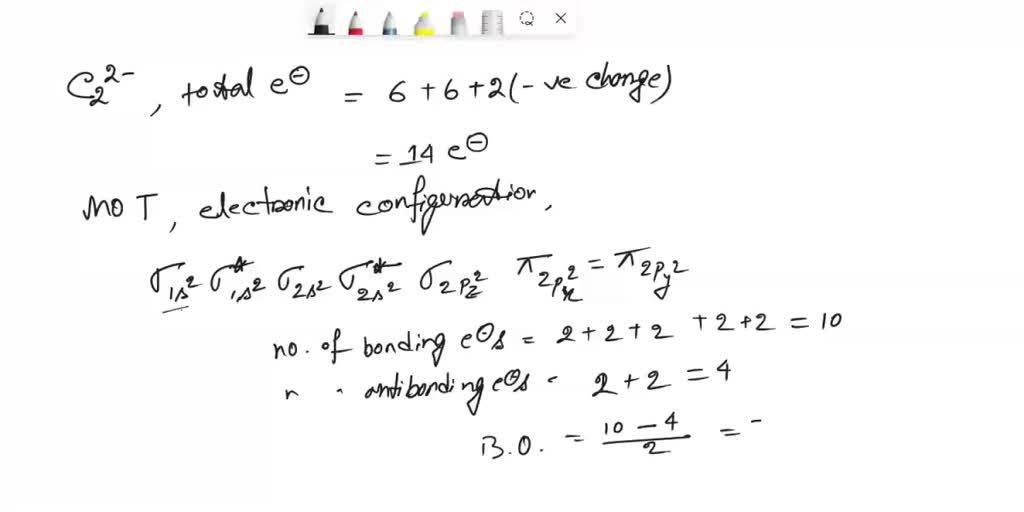 C₂²⁻, total e⊖ = 6 + 6 + 2 (-ve charge)
= 14 e⊖
MOT, electronic configuration,
σ1s² σ*1s² σ2s² σ*2s² σ2pz² π2px² = π2py²
no. of bonding e⊖s = 2 + 2 + 2 + 2 + 2 = 10
" " antibonding e⊖s = 2 + 2 = 4
B.O. = 10 - 4 / 2 =